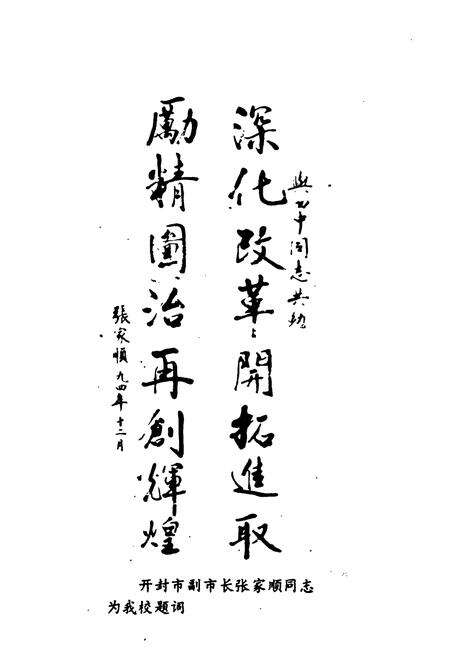 與工中同志共勉
深化改革開拓進取
勵精圖治再創輝煌
張家順九四年十二月
开封市副市长张家顺同志
为我校题词